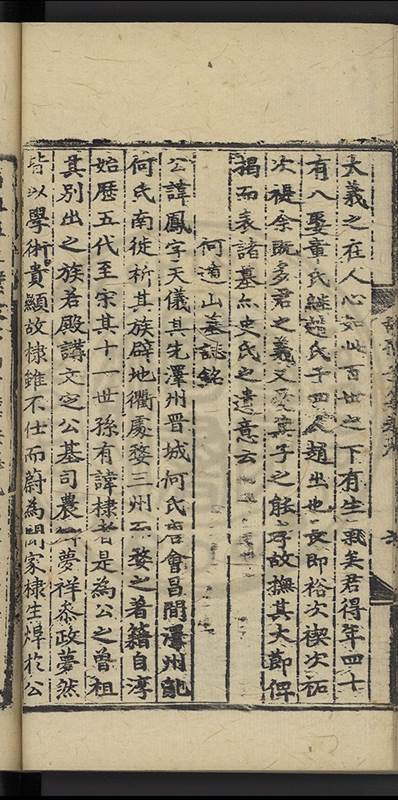 大義之在人心如此百世之下有生氣矣君得年四十
有八娶童氏繼趙氏子四人趙出也長即裕次禊次祐
次禔余既多君之義又愛其子之能子故撫其大節俾
揭而表諸墓亦史氏之遺意云
何遁山墓誌銘
公諱鳳字天儀其先澤州晋城何氏唐會昌間澤州亂
何氏南徙析其族辟地衢處婺三州而婺之著籍自淳
始歴五代至宋其十一世孫有諱棣者是為公之曾祖
其別出之族若殿講文定公基司農夢祥叅政夢然
皆以學術貴顯故棣雖不仕而蔚為聞家棣生焯於公